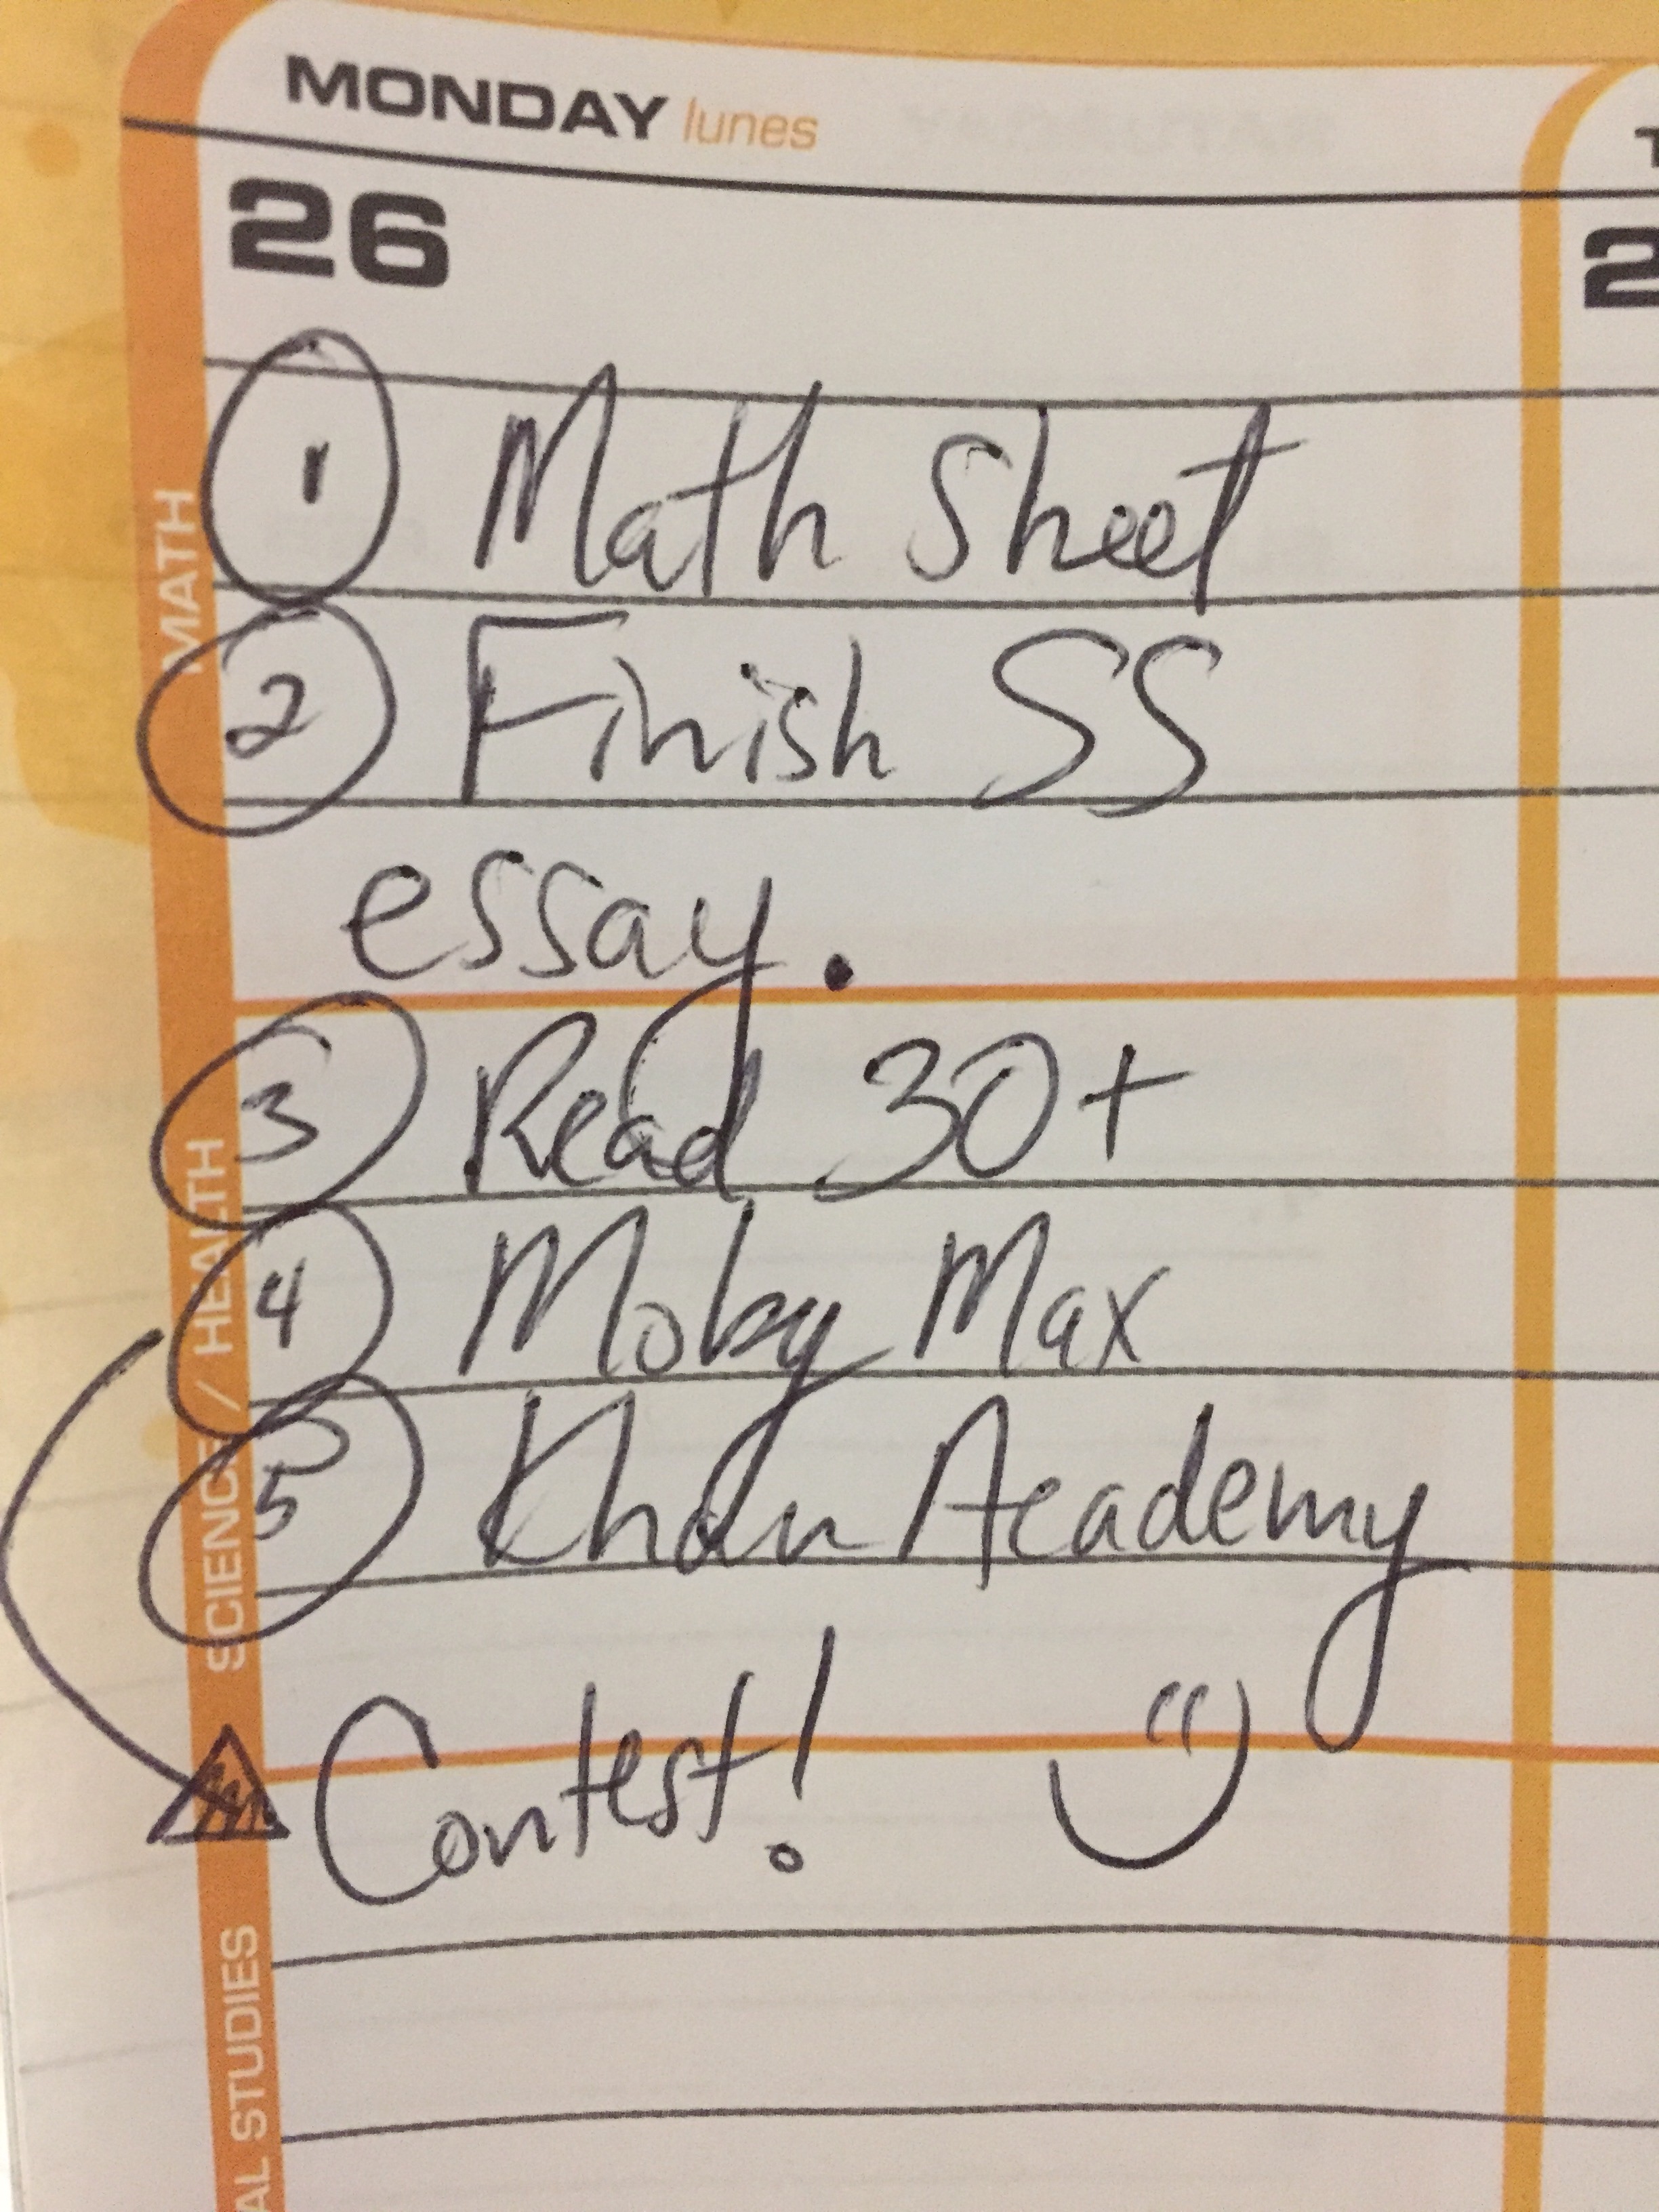 MONDAY lunes
26
2
1 Math Sheet
2 Finish SS
essay.
3 Read 30+
4 Moby Max
5 Khan Academy
Contest!
MATH
SCIENCE / HEALTH
AL STUDIES